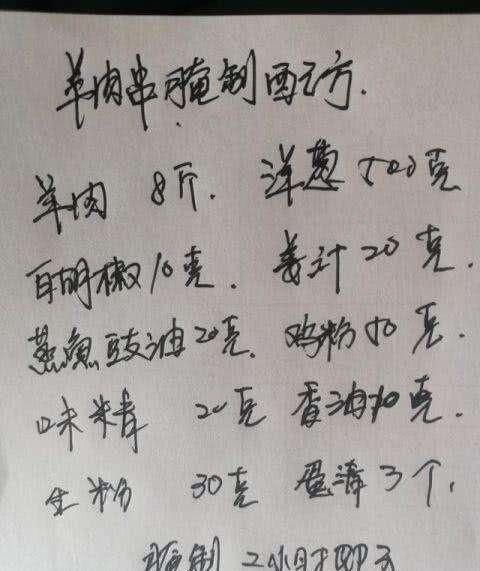 羊肉串腌制配方.
羊肉 8斤. 洋葱 500克
白胡椒10克. 姜汁20克.
蒸鱼豉油20克. 鸡粉50克.
味精 20克 香油10克.
生粉 30克 蛋清3个.
腌制 2小时即可